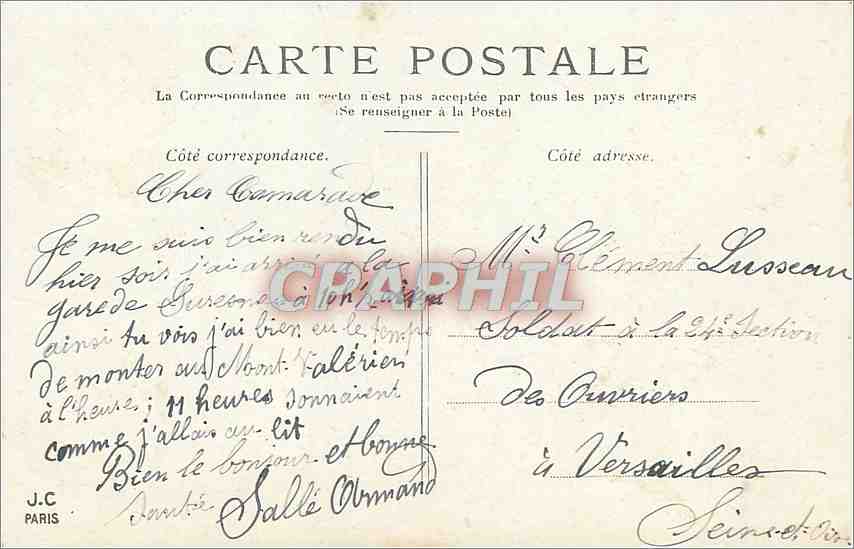 CARTE POSTALE
La Correspondance au recto n'est pas acceptée par tous les pays etrangers
(Se renseigner à la Poste)
Côté correspondance.
Cher Camarade
Je me suis bien rendu
hier soir j'ai arrivé a la
gare de Suresnes à 10h
ainsi tu vois j'ai bien eu le temps
de monter au Mont-Valérien
à l'heure; 11 heures sonnaient
comme j'allais au lit
Bien le bonjour et bonne
santé Sallé Armand
J.C
PARIS
Côté adresse.
Mr Clément Lusseau
Soldat à la 24e Section
des Ouvriers
à Versailles
Seine-et-Oise
CPAPHIL